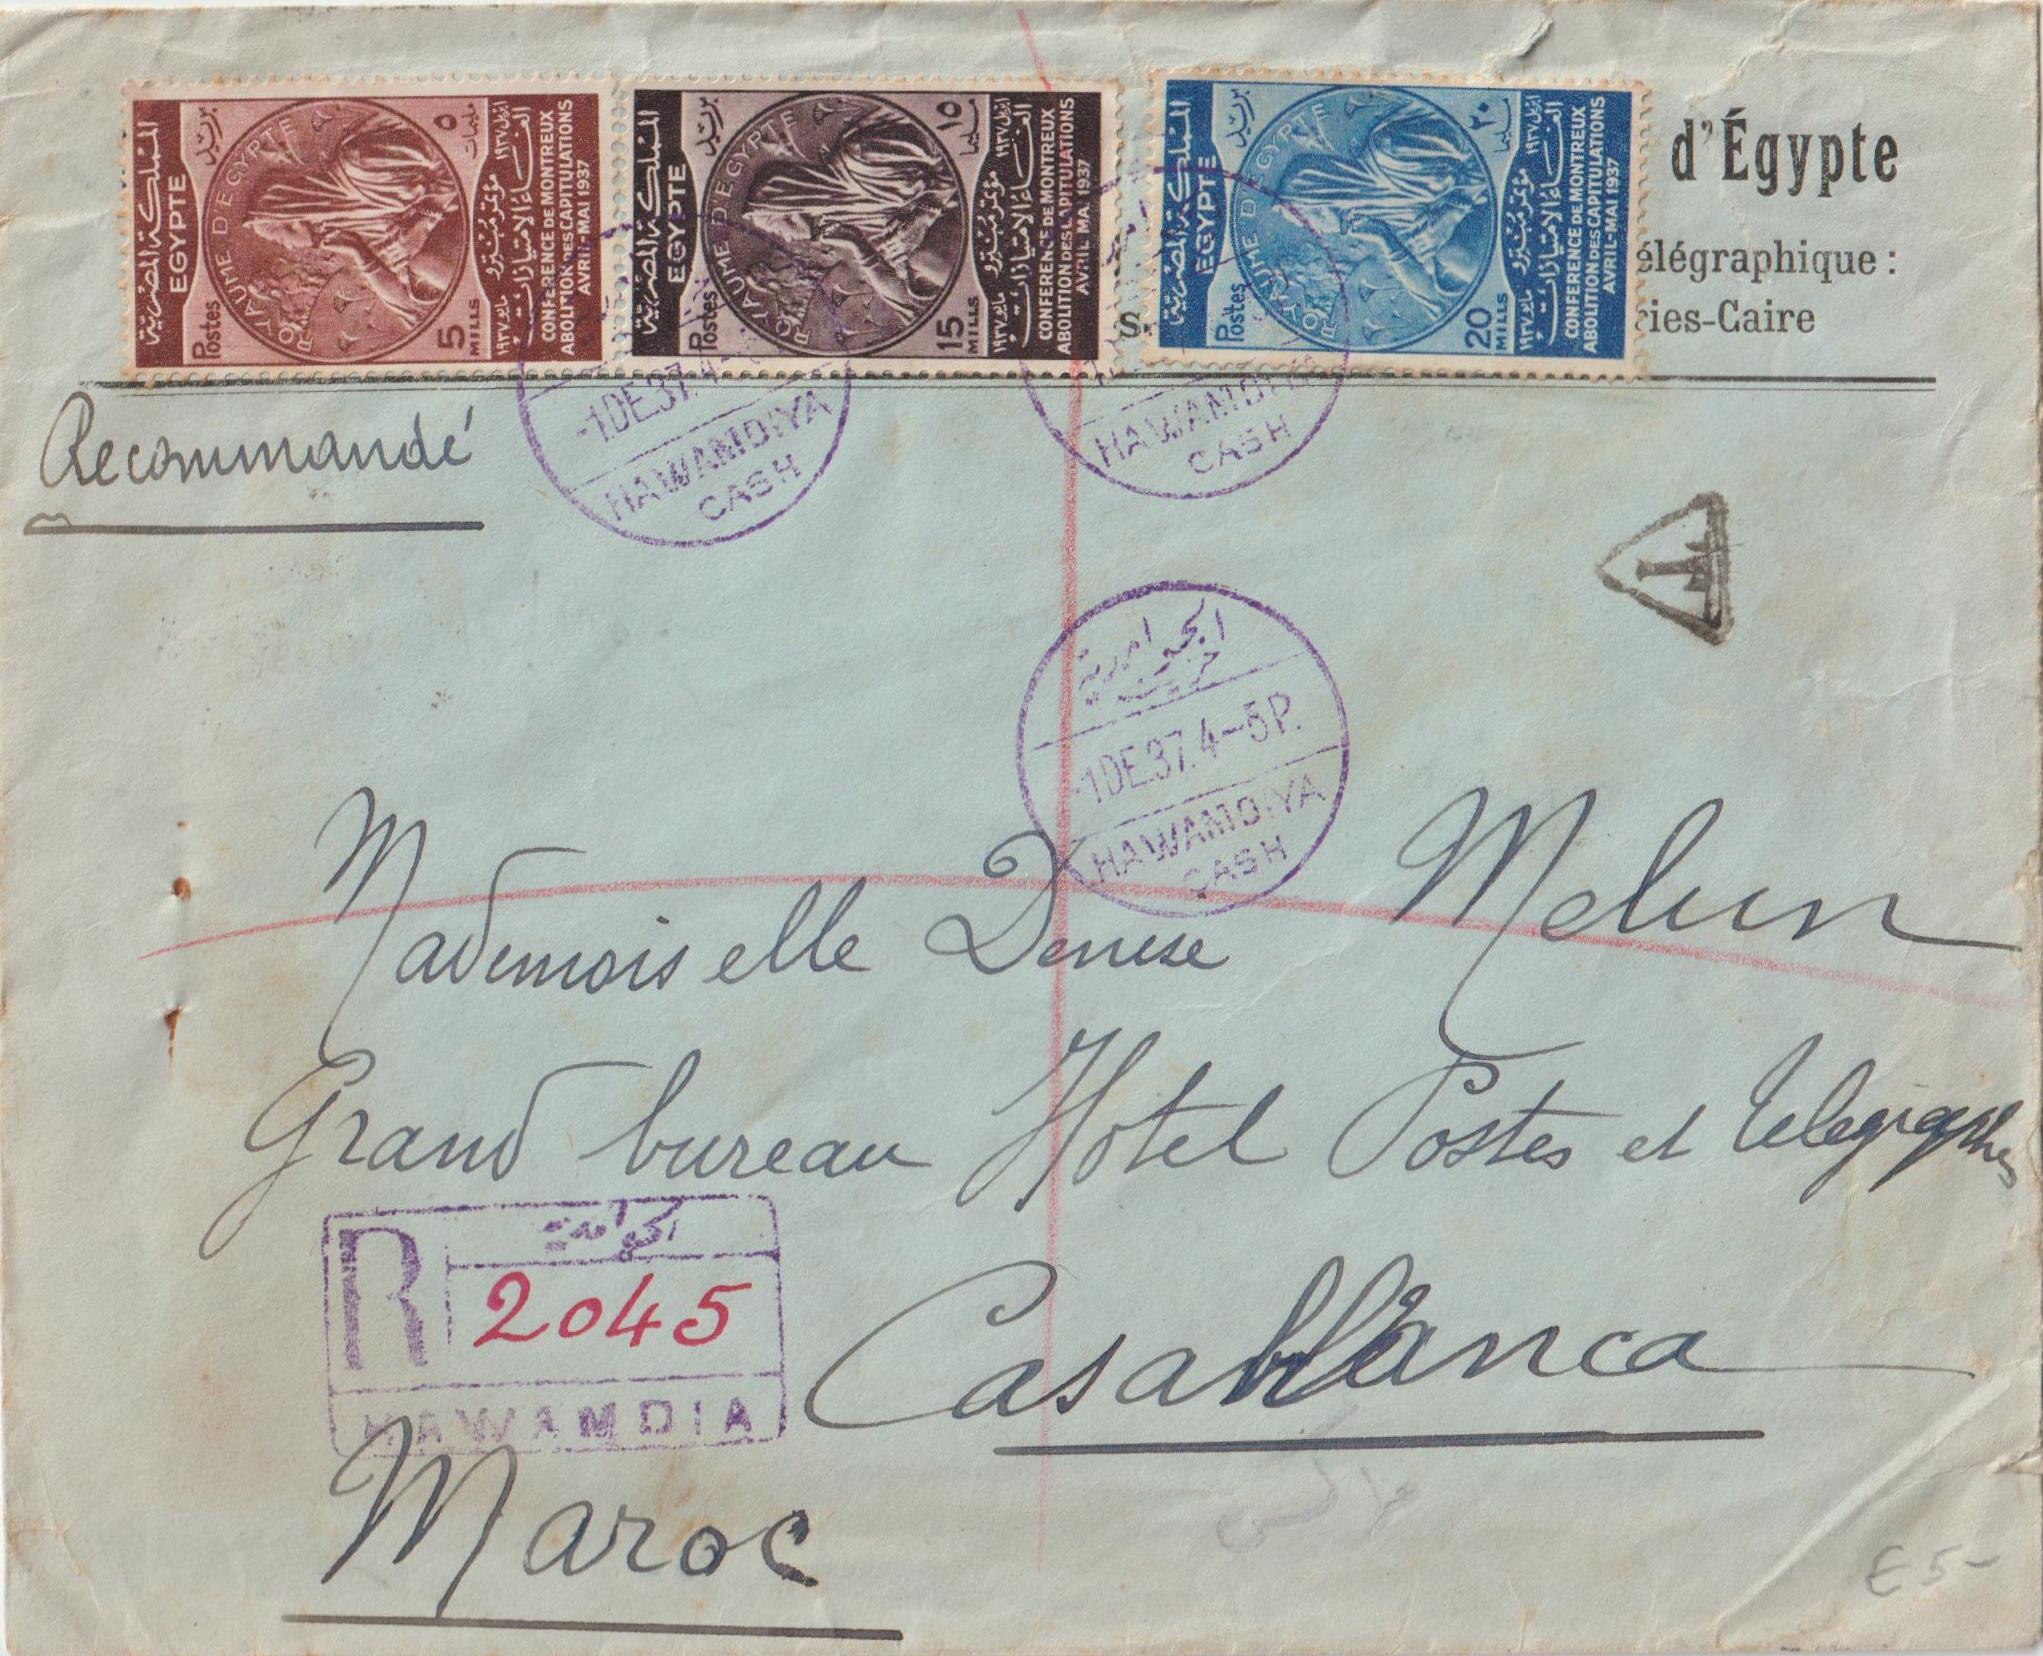 المملكة المصرية
EGYPTE
Postes
بريد
ROYAUME D'EGYPTE
٥
مليمات
5
MILLS
مؤتمر مونترو
الغاء الامتيازات
CONFERENCE DE MONTREUX
ABOLITION DES CAPITULATIONS
AVRIL-MAI 1937
المملكة المصرية
EGYPTE
Postes
بريد
ROYAUME D'EGYPTE
١٥
مليما
15
MILLS
مؤتمر مونترو
الغاء الامتيازات
CONFERENCE DE MONTREUX
ABOLITION DES CAPITULATIONS
AVRIL-MAI 1937
المملكة المصرية
EGYPTE
Postes
بريد
ROYAUME D'EGYPTE
٢٠
مليما
20
MILLS
مؤتمر مونترو
الغاء الامتيازات
CONFERENCE DE MONTREUX
ABOLITION DES CAPITULATIONS
AVRIL-MAI 1937
d'Égypte
élégraphique :
S.
ries-Caire
Recommandé
-1DE.37.4-
HAWAMDIYA
CASH
HAWAMDIYA
CASH
T
-1DE.37.4-5P.
HAWAMDIYA
CASH
Mademoiselle Denise Melun
Grand bureau Hotel Postes et Telegraphes
R
2045
HAWAMDIA
Casablanca
Maroc
£5-